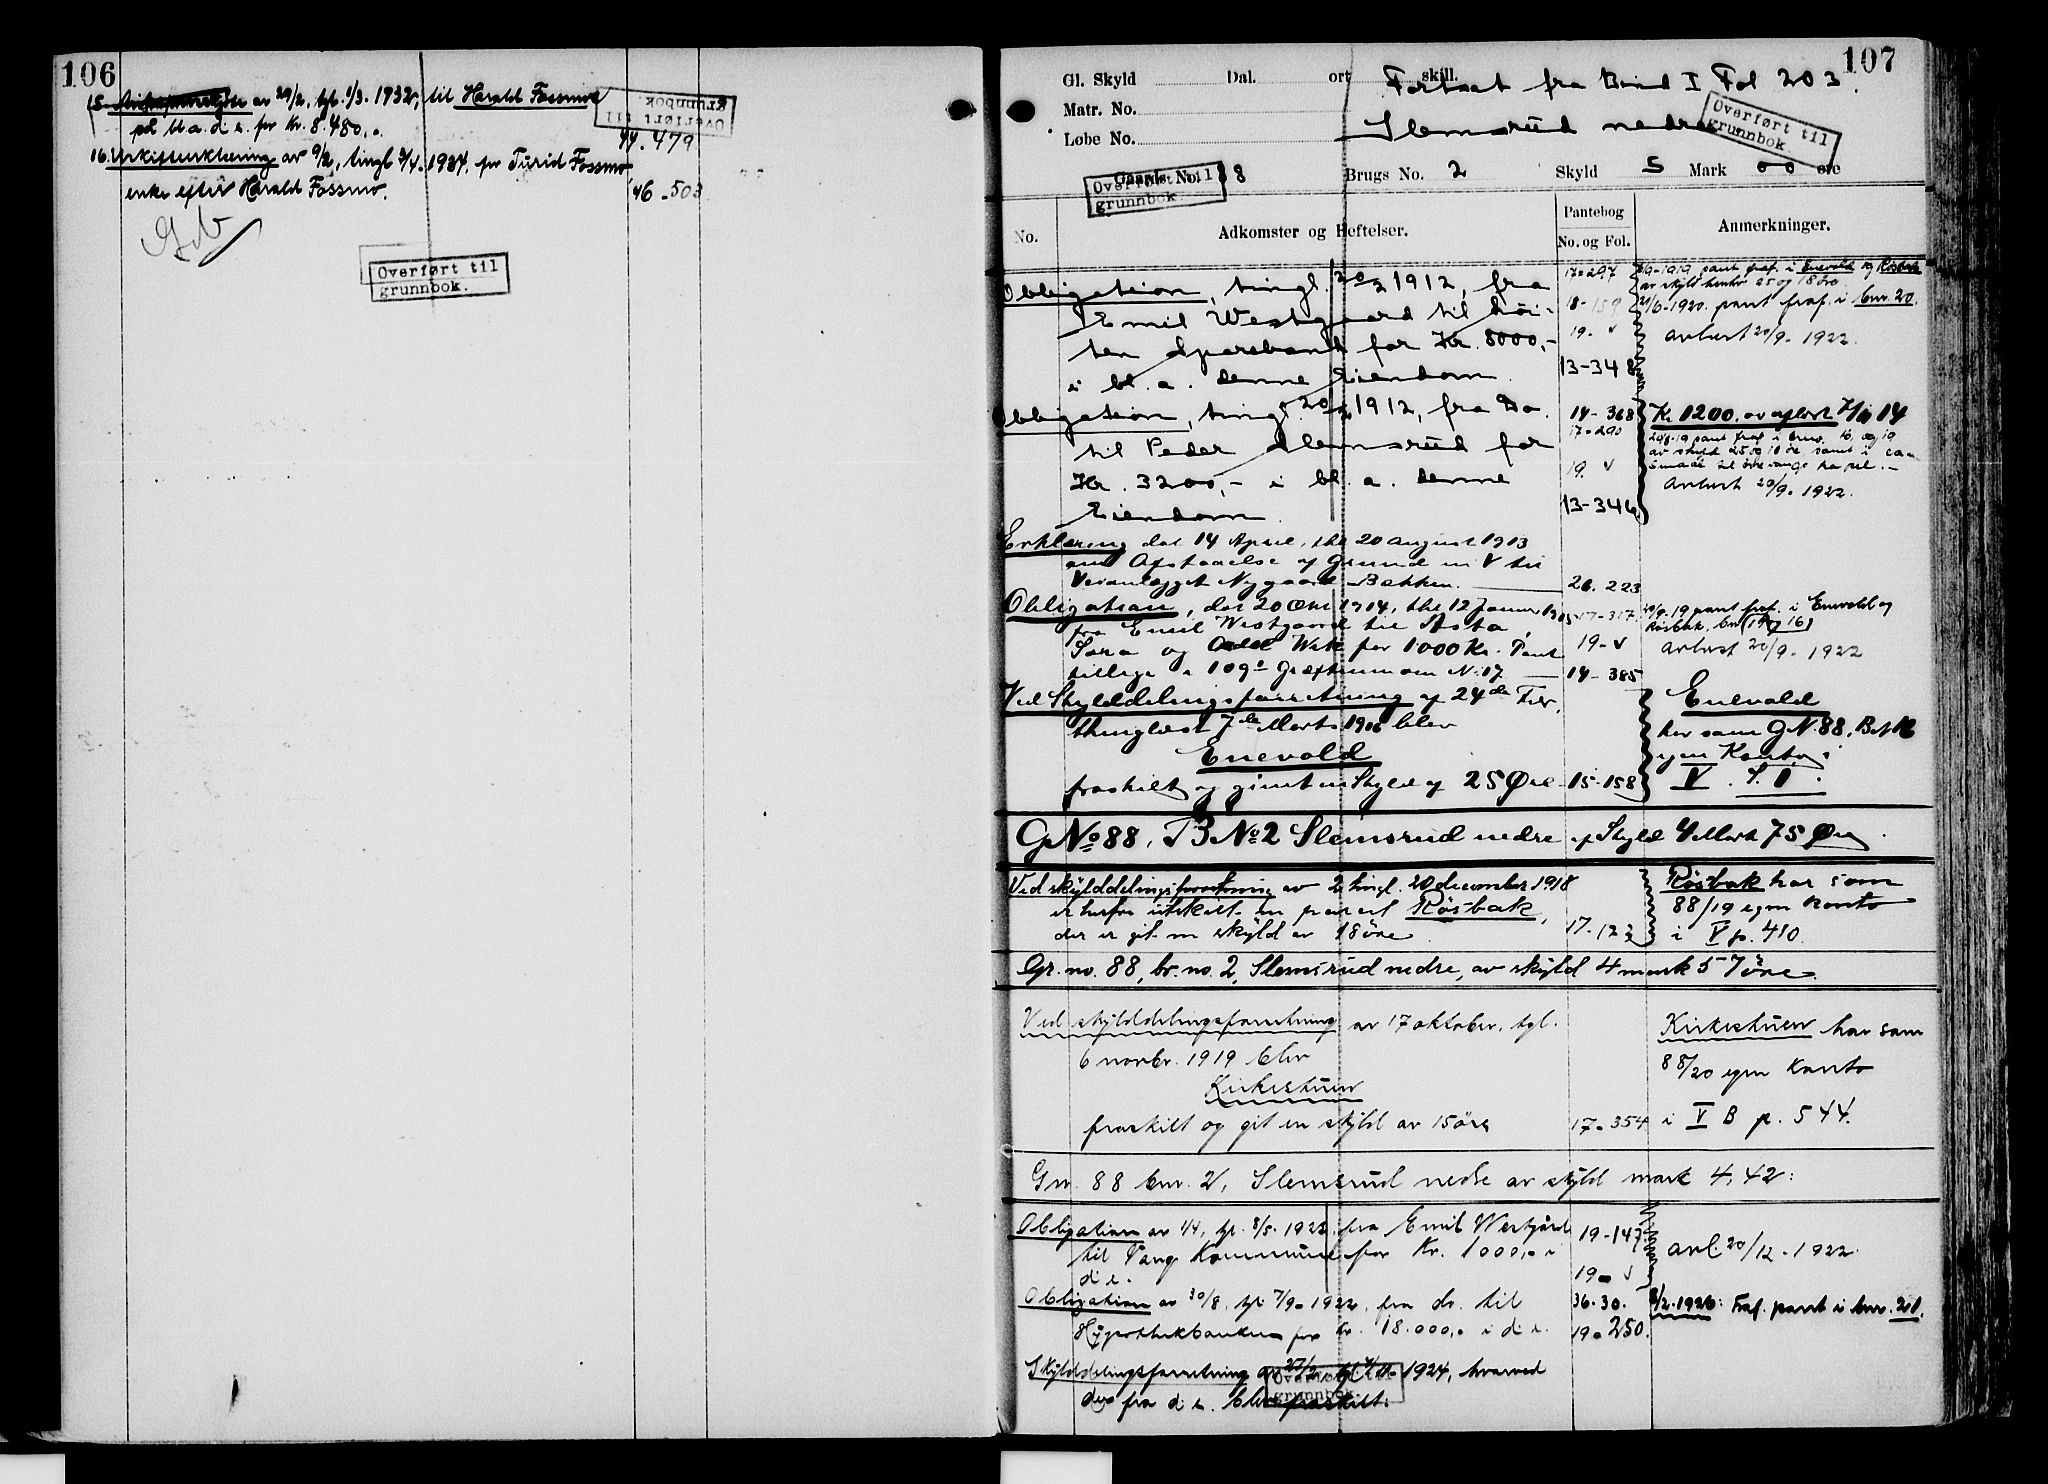 106
15. Auktionsskjøte av 29/2, tgl. 1/3. 1932, til Harald Fossmo
på bl. a. d. e. for Kr. 8.480,.
44.479
Overført til
grunnbok.
16. Uskifteerklæring av 9/2, tingl 3/4. 1934, for Turid Fossmo
enke efter Harald Fossmo.
46-503
Overført til
grunnbok.
107
Gl. Skyld Dal. ort skill.
Fortsat fra Bind I Fol 203.
Matr. No.
Løbe No.
Slemsrud nedre
Overført til
grunnbok.
Gaards No. 88 Brugs No. 2 Skyld 5 Mark 00 øre
Overført til
grunnbok.
No. Adkomster og Heftelser. Pantebog No. og Fol. Anmerkninger.
Obligation, tingl. 20/2 1912, fra
Emil Westgaard til Løi-
ten Sparebank for Kr. 8000,-
i bl. a. denne Eiendom.
17-297
18-159
19-√
13-348
9-1919 pant fraf. i Enevold og Røsbak
av skyld henhv 25 og 18 øre
21/6-1920. pant fraf. i bnr. 20.
avlyst 20/9. 1922.
Obligation, tingl. 20/2 1912, fra Do.
til Peder Slemsrud for
Kr. 3200,- i bl. a. denne
Eiendom.
14-368
17-290
19. √
13-346
Kr 1200. avlyst 14
pant fraf i bnr. 16 og 19
av skyld 25 og 18 øre samt i
Avlyst 20/9. 1922.
Erklæring dat 14 April, thl 20 August 1913
om Afstaaelse af Grund til
Veranlægget Nygaard-Bekken.
26. 223
Obligation, dat 20 Okt 1914, thl 12 Januar 1915
fra Emil Westgaard til Asta,
Sara og Odd Wik for 1000 Kr. Pant
tillige i 109
17-317
19-√
14-385
9-19 pant fraf. i Enevold og
Røsbak, bnr (19 og 16)
avlyst 20/9. 1922
Ved Skylddelingsforretning af 24de Febr.
thinglæst 7de Marts 1916 blev
Enevold
fraskilt og givet en Skyld af 25 Øre
15-158
Enevold
har som GN. 88, BN 16
egen Konto i
V. S. 1.
GNo 88, BNo 2 Slemsrud nedre af Skyld 4 Mark 75 Øre.
Ved skylddelingsforretning av 2, tingl. 20 december 1918
er herfra utskilt en parcel Røsbak,
der er git en skyld av 18 øre.
17-122
Røsbak har som
88/19 egen konto
i V p. 410.
Gr. no. 88, br. no. 2, Slemsrud nedre, av skyld 4 mark 57 øre.
Ved skylddelingsforretning av 17 oktober, tgl.
6 novbr. 1919 blev
Kirkestuen
fraskilt og git en skyld av 15 øre
17-354
Kirkestuen har som
88/20 egen konto
i V B p. 544.
Gnr. 88 bnr. 2, Slemsrud nedre av skyld mark 4,42:
Obligation av 1/4, tgl. 8/5. 1922 fra Emil Westgård
til Vang Kommune for Kr. 1000,- i
d. e.
19-147
19-√
avl. 20/12-1922
Obligation av 30/8, tgl 7/9-1922, fra do. til
Hypothekbanken for Kr. 18.000,- i d. e.
36.30.
19-250.
2-1926: Fraf. pant i bnr. 21.
Skylddelingsforretning av 27/2, tgl. 1924, hvorved
fra d. e. blev fraskilt.
Overført til
grunnbok.